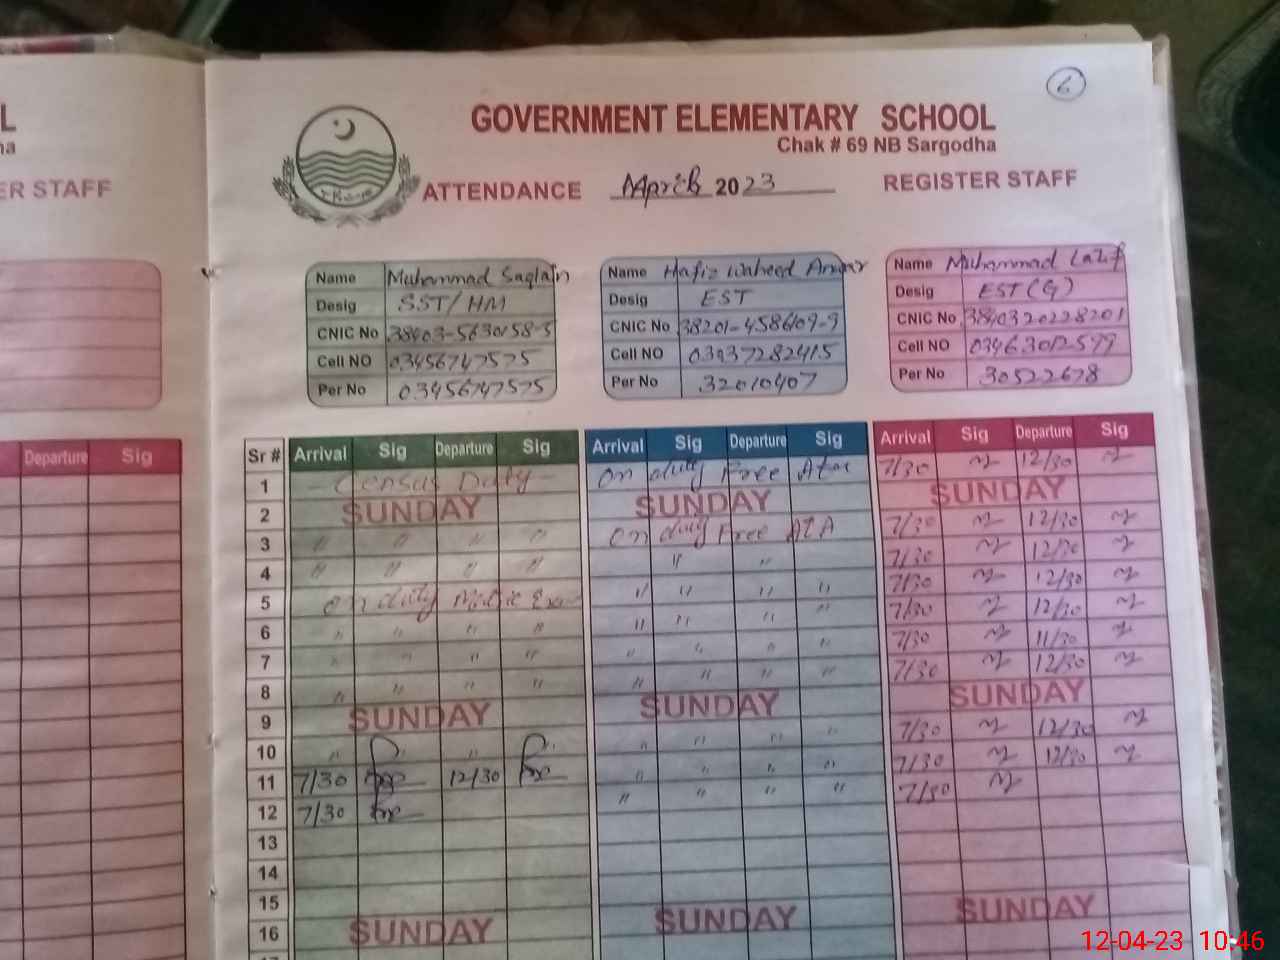 L
na
ER STAFF
Departure Sig
6
GOVERNMENT ELEMENTARY SCHOOL
Chak # 69 NB Sargodha
ATTENDANCE April 2023 REGISTER STAFF
Name Muhammad Saqlain
Desig SST/HM
CNIC No 38403-5630158-5
Cell NO 03456747575
Per No 03456747575
Name Hafiz Waheed Anwar
Desig EST
CNIC No 38201-4586109-9
Cell NO 03437282415
Per No 32010407
Name Muhammad Latif
Desig EST (G)
CNIC No 3840320228201
Cell NO 03463012599
Per No 30522678
Sr # Arrival Sig Departure Sig Arrival Sig Departure Sig Arrival Sig Departure Sig
1 Census Duty On duty Free Ata 7/30 12/30
2 SUNDAY SUNDAY SUNDAY
3 " " " " On duty Free AtA 7/30 12/30
4 " " " " " " 7/30 12/30
5 On duty Matric " " " " 7/30 12/30
6 " " " " " " " " 7/30 12/30
7 " " " " " " " " 7/30 11/30
8 " " " " " " " 7/30 12/30
9 SUNDAY SUNDAY SUNDAY
10 " " " " " 7/30 12/30
11 7/30 12/30 " " " " 7/30 12/30
12 7/30 " " " " 7/30
13
14
15
16 SUNDAY SUNDAY SUNDAY
12-04-23 10:46